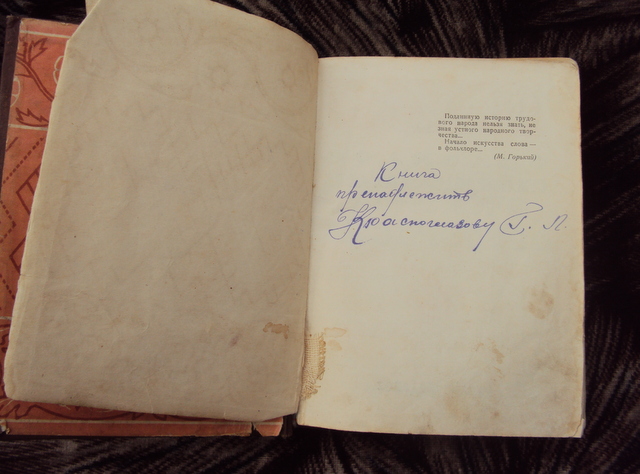 Подлинную историю трудо-
вого народа нельзя знать, не
зная устного народного твор-
чества...
Начало искусства слова —
в фольклоре...
(М. Горький)
Книга
принадлежитъ
Красноглазову Г. П.